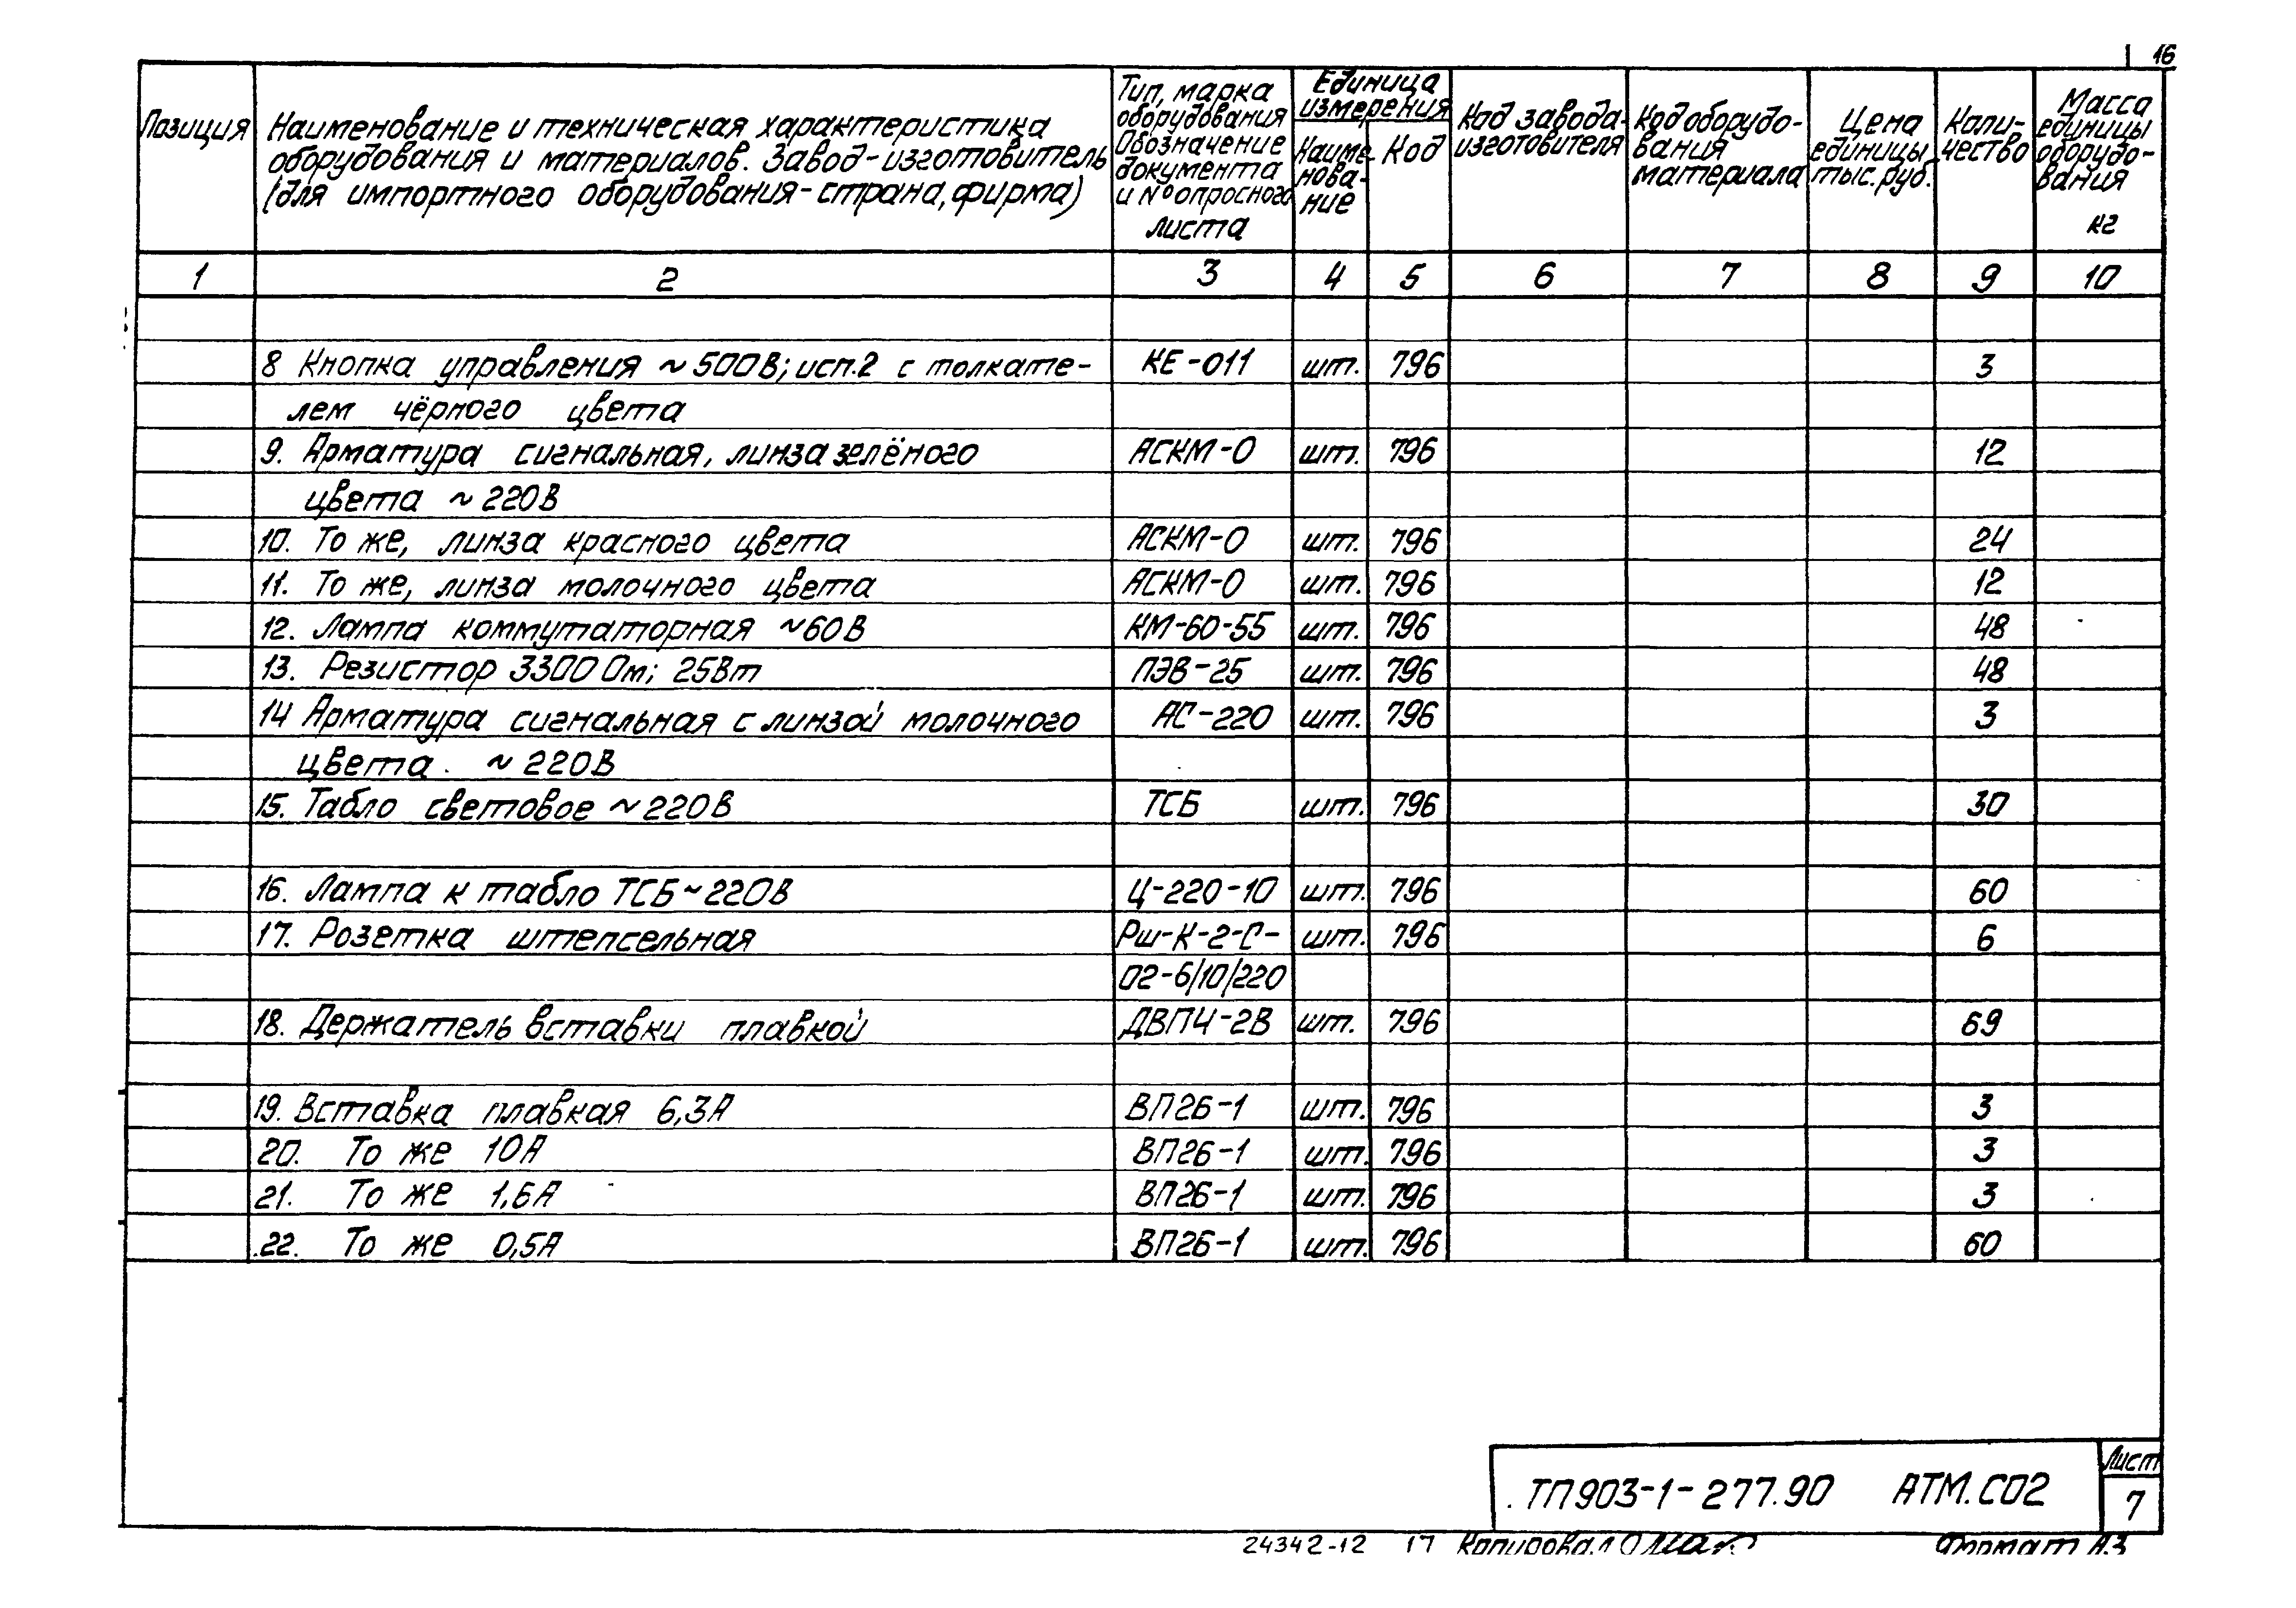 16
Позиция
Наименование и техническая характеристика
оборудования и материалов. Завод-изготовитель
(для импортного оборудования-страна, фирма)
Тип, марка
оборудования
Обозначение
документа
и № опросного
листа
Единица
измерения
Наиме-
нова-
ние
Код
Код завода-
изготовителя
Код оборудо-
вания
материала
Цена
единицы
тыс. руб.
Коли-
чество
Масса
единицы
оборудо-
вания
кг
1 2 3 4 5 6 7 8 9 10
8 Кнопка управления ~500В; исп.2 с толкате- КЕ-011 шт. 796 3
лем чёрного цвета
9. Арматура сигнальная, линза зелёного АСКМ-0 шт. 796 12
цвета ~220В
10. То же, линза красного цвета АСКМ-0 шт. 796 24
11. То же, линза молочного цвета АСКМ-0 шт. 796 12
12. Лампа коммутаторная ~60В КМ-60-55 шт. 796 48
13. Резистор 3300 Ом; 25Вт ПЭВ-25 шт. 796 48
14 Арматура сигнальная с линзой молочного АС-220 шт. 796 3
цвета. ~220В
15. Табло световое ~220В ТСБ шт. 796 30
16. Лампа к табло ТСБ ~220В Ц-220-10 шт. 796 60
17. Розетка штепсельная Рш-К-2-С- шт. 796 6
02-6/10/220
18. Держатель вставки плавкой ДВП4-2В шт. 796 69
19. Вставка плавкая 6,3А ВП2Б-1 шт. 796 3
20. То же 10А ВП2Б-1 шт. 796 3
21. То же 1,6А ВП2Б-1 шт. 796 3
22. То же 0,5А ВП2Б-1 шт. 796 60
ТП903-1-277.90 АТМ.С02
Лист
7
24342-12 17 Копировал Формат А3